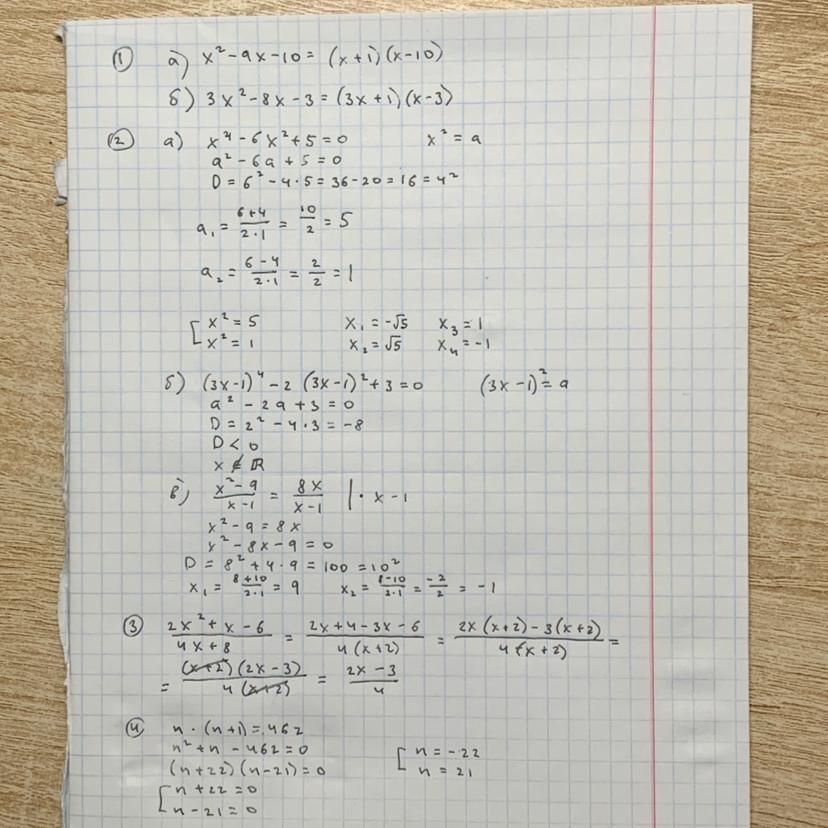 ① а) x² - 9x - 10 = (x+1)(x-10)
б) 3x² - 8x - 3 = (3x+1)(x-3)
② а) x⁴ - 6x² + 5 = 0 x² = a
a² - 6a + 5 = 0
D = 6² - 4·5 = 36 - 20 = 16 = 4²
a₁ = (6+4)/(2·1) = 10/2 = 5
a₂ = (6-4)/(2·1) = 2/2 = 1
[ x² = 5 x₁ = -√5 x₃ = 1
x² = 1 x₂ = √5 x₄ = -1
б) (3x-1)⁴ - 2(3x-1)² + 3 = 0 (3x-1)² = a
a² - 2a + 3 = 0
D = 2² - 4·3 = -8
D < 0
x ∉ ℝ
в) (x²-9)/(x-1) = 8x/(x-1) | · x-1
x² - 9 = 8x
x² - 8x - 9 = 0
D = 8² + 4·9 = 100 = 10²
x₁ = (8+10)/(2·1) = 9 x₂ = (8-10)/(2·1) = -2/2 = -1
③ (2x²+x-6)/(4x+8) = (2x+4-3x-6)/(4(x+2)) = (2x(x+2)-3(x+2))/(4(x+2)) =
= ((x+2)(2x-3))/(4(x+2)) = (2x-3)/4
④ n·(n+1) = 462
n² + n - 462 = 0 [ n = -22
(n+22)(n-21) = 0 n = 21
[ n + 22 = 0
n - 21 = 0